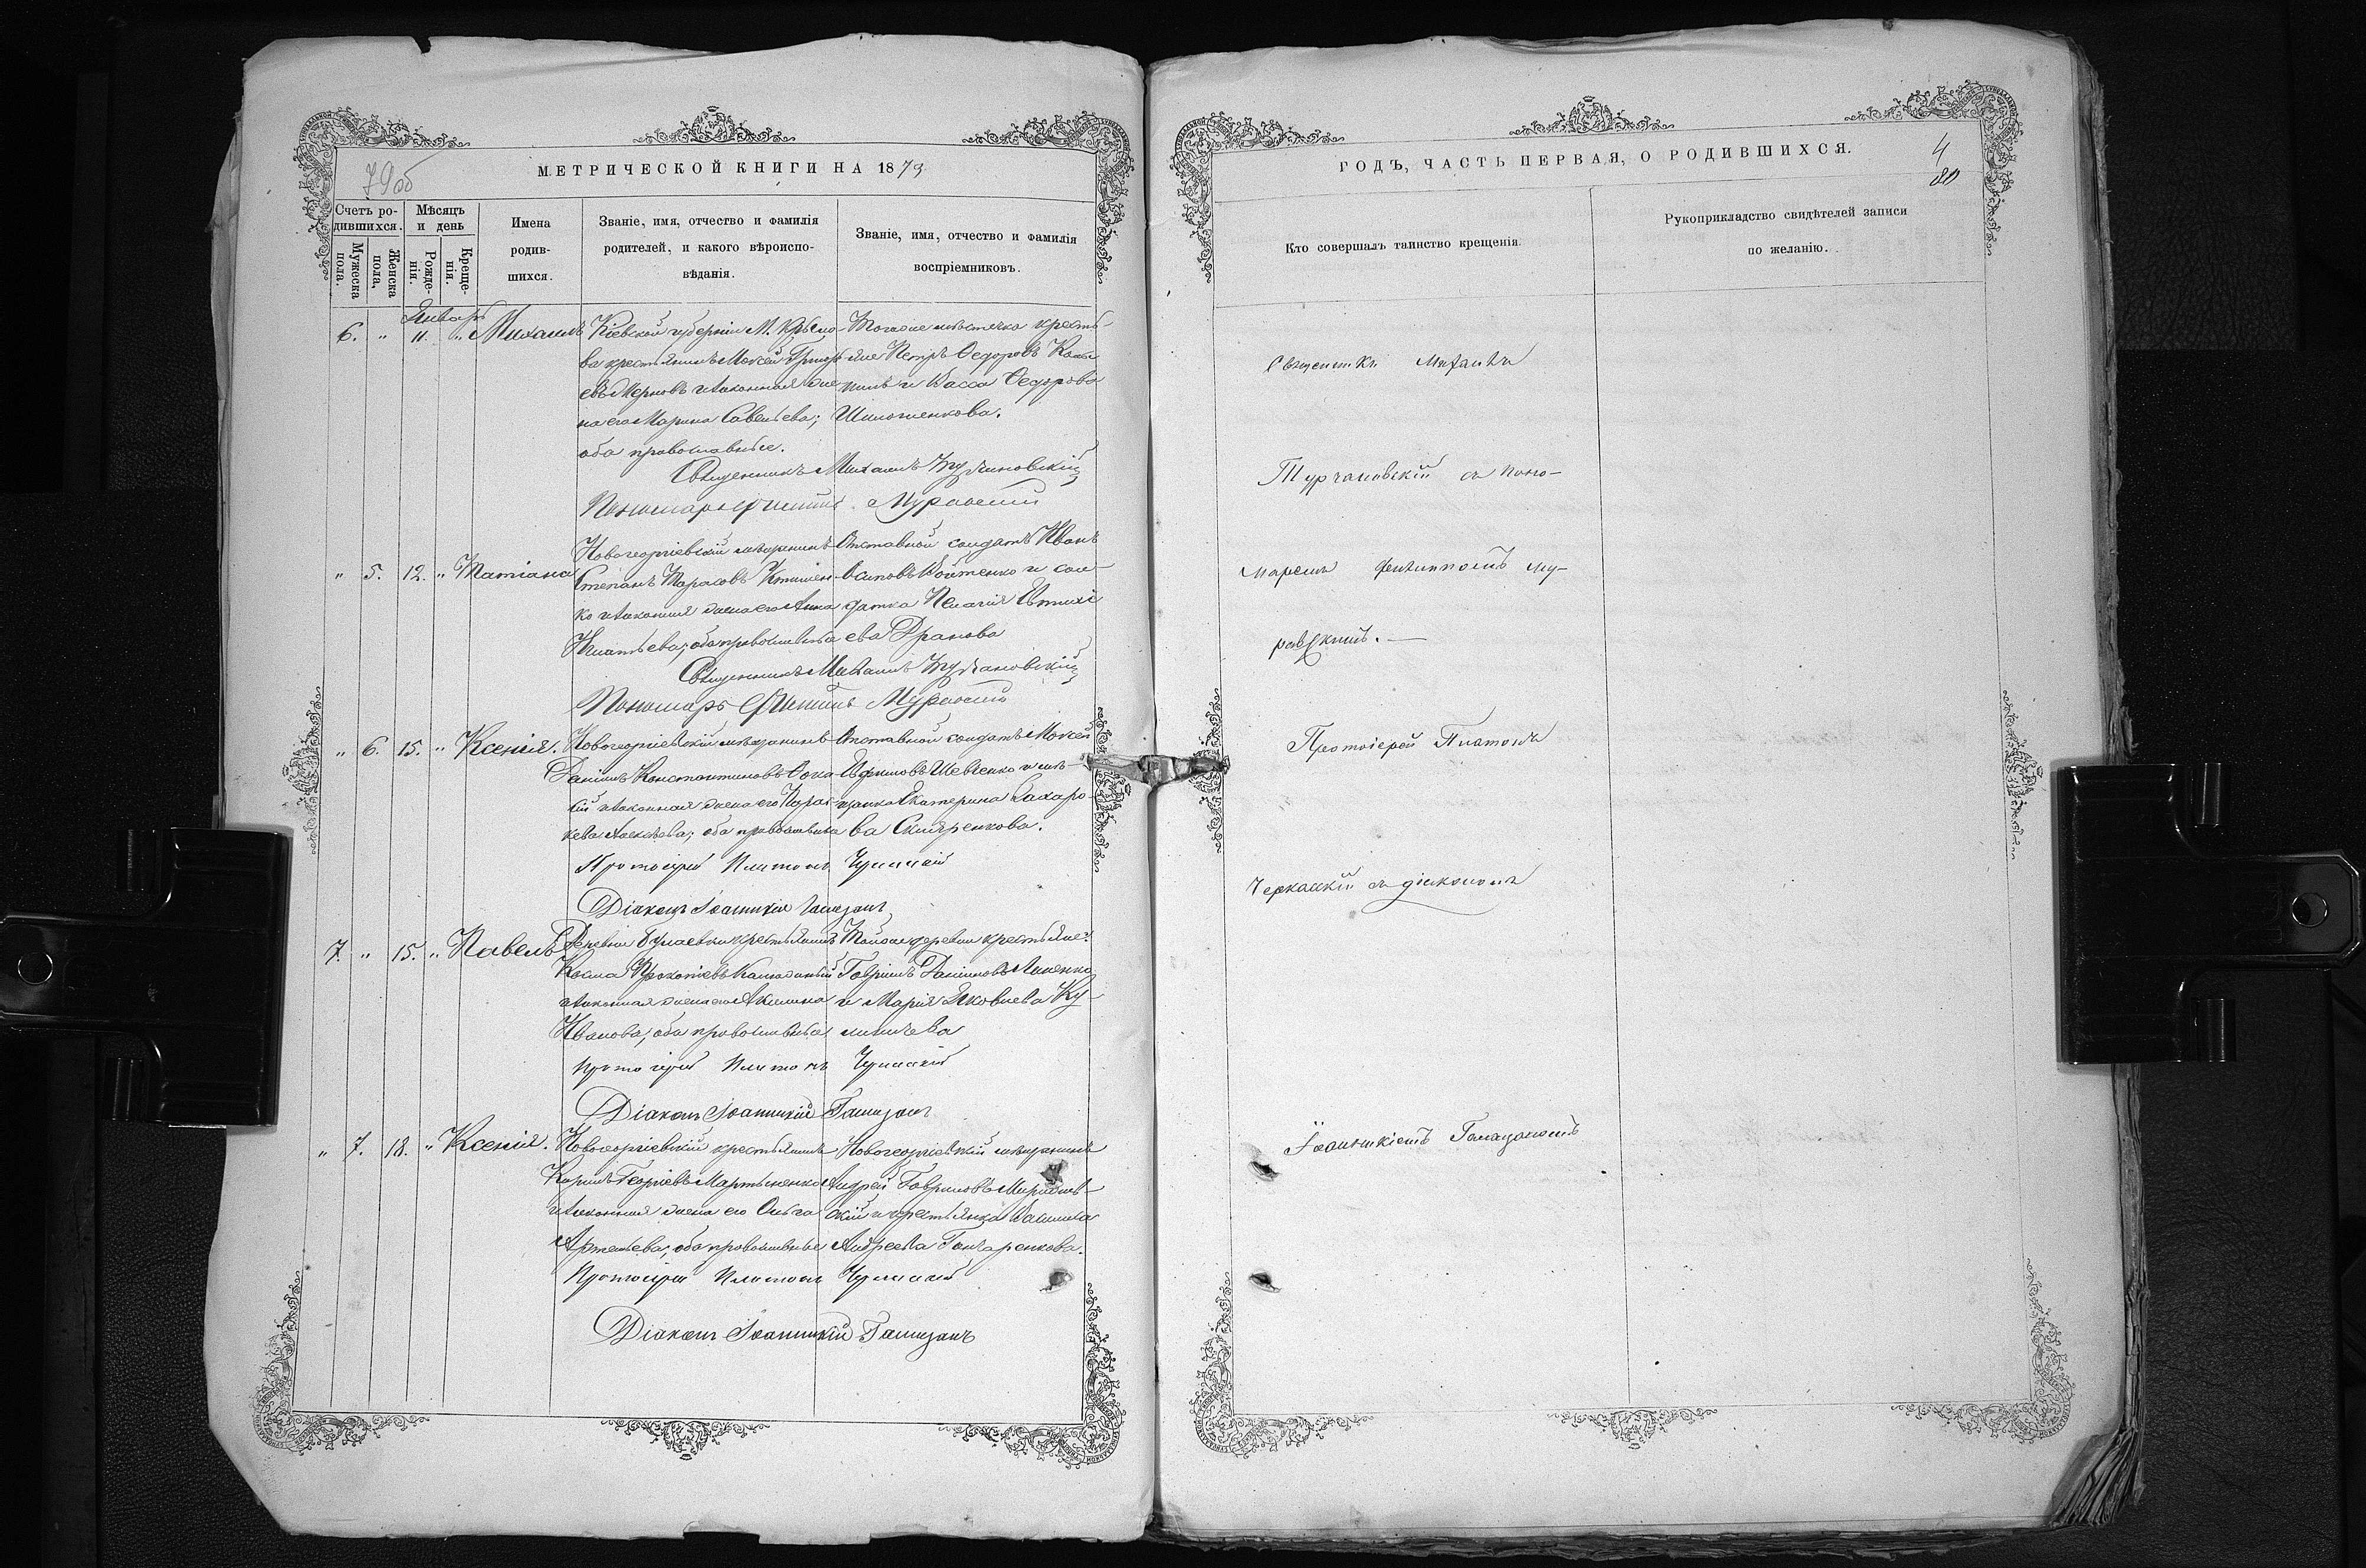 79об
МЕТРИЧЕСКОЙ КНИГИ НА 1873
Счетъ ро-
дившихся.
Мужеска пола.
Женска пола,
Мѣсяцъ
и день
Рожде-
нія.
Креще-
нія.
Имена
родив-
шихся.
Званіе, имя, отчество и фамилія
родителей, и какого вѣроиспо-
вѣданія.
Званіе, имя, отчество и фамилія
воспріемниковъ.
Январь
6. " 11. " Михаилъ
Кіевской губерніи М. Крыло-
ва крестьянинъ Моисей Григорь
евъ и законная же
на его Марина Савельева;
оба православные.
Тогоже мѣстечка кресть-
яне Петръ Ѳедоровъ
и Васса Ѳедорова
Священникъ Михаилъ Турчановскій
Пономарь Филиппъ Муравскій
" 5. 12. " Татіана
Новогеоргіевскій мѣщанинъ
Степанъ Тарасовъ
ко и законная жена его Анна
Игнатьева; оба православные
Отставной солдатъ Иванъ
Осиповъ Войтенко и сол-
датка Пелагія Евтихі
ева Дранова
Священникъ Михаилъ Турчановскій
Пономарь Филиппъ Муравскій
" 6. 15. " Ксенія.
Новогеоргіевскій мѣщанинъ
Даніилъ Константиновъ
и законная жена его Парас-
кева Алексѣева; оба православные
Отставной солдатъ Моисей
Ефимовъ Шевченко и мѣ-
щанка Екатерина Захаро-
ва Скляренкова.
Протоіерей Платонъ Черкаскій
Діаконъ Іоанникій Галаганъ
7. " 15. " Павелъ
Деревни Бужаевки крестьянинъ
Косма Прокопіевъ
и законная жена его Акилина
Иванова; оба православные
Тойже деревни крестьяне:
Гавріилъ Даніиловъ Лапенко
и Марія Яковлева Ку
личева
Протоіерей Платонъ Черкаскій
Діаконъ Іоанникій Галаганъ
" 7. 18. " Ксенія.
Новогеоргіевскій крестьянинъ
Кирилъ Георгіевъ Мартыненко
и законная жена его Ольга
Артемьева; оба православные
Новогеоргіевскій мѣщанинъ
Андрей Гавриловъ
скій и крестьянка
Андреева Гончаренкова.
Протоіерей Платонъ Черкаскій
Діаконъ Іоанникій Галаганъ
ГОДЪ, ЧАСТЬ ПЕРВАЯ, О РОДИВШИХСЯ.
4
80
Кто совершалъ таинство крещенія.
Рукоприкладство свидѣтелей записи
по желанію.
Священникъ Михаилъ
Турчановскій съ поно-
маремъ Филиппомъ Му-
равскимъ.
Протоіерей Платонъ
Черкаскій съ діакономъ
Іоанникіемъ Галаганомъ